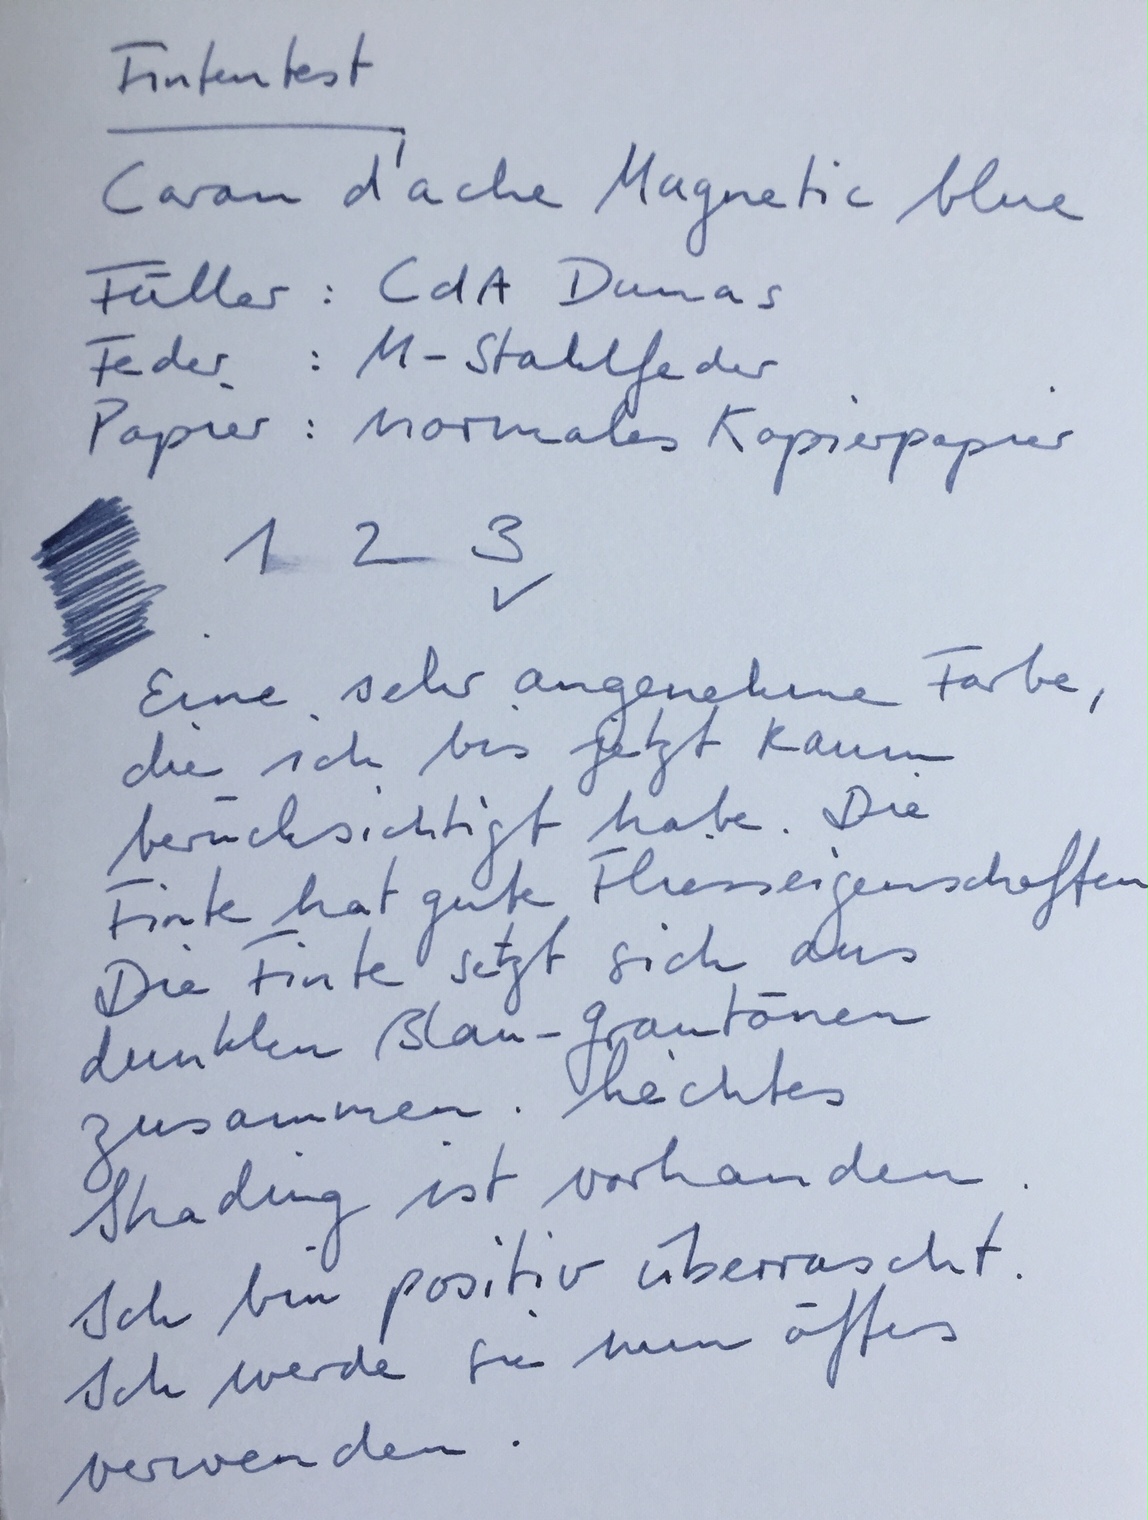 Tintentest
Caran d'ache Magnetic blue
Füller : CdA Dunas
Feder : M-Stahlfeder
Papier : normales Kopierpapier
1 2 3
✓
Eine sehr angenehme Farbe,
die ich bis jetzt kaum
berücksichtigt habe. Die
Tinte hat gute Fliesseigenschaften
Die Tinte setzt sich aus
dunklen Blau-grautönen
zusammen. leichtes
Shading ist vorhanden.
Ich bin positiv überrascht.
Ich werde sie nun öfters
verwenden.